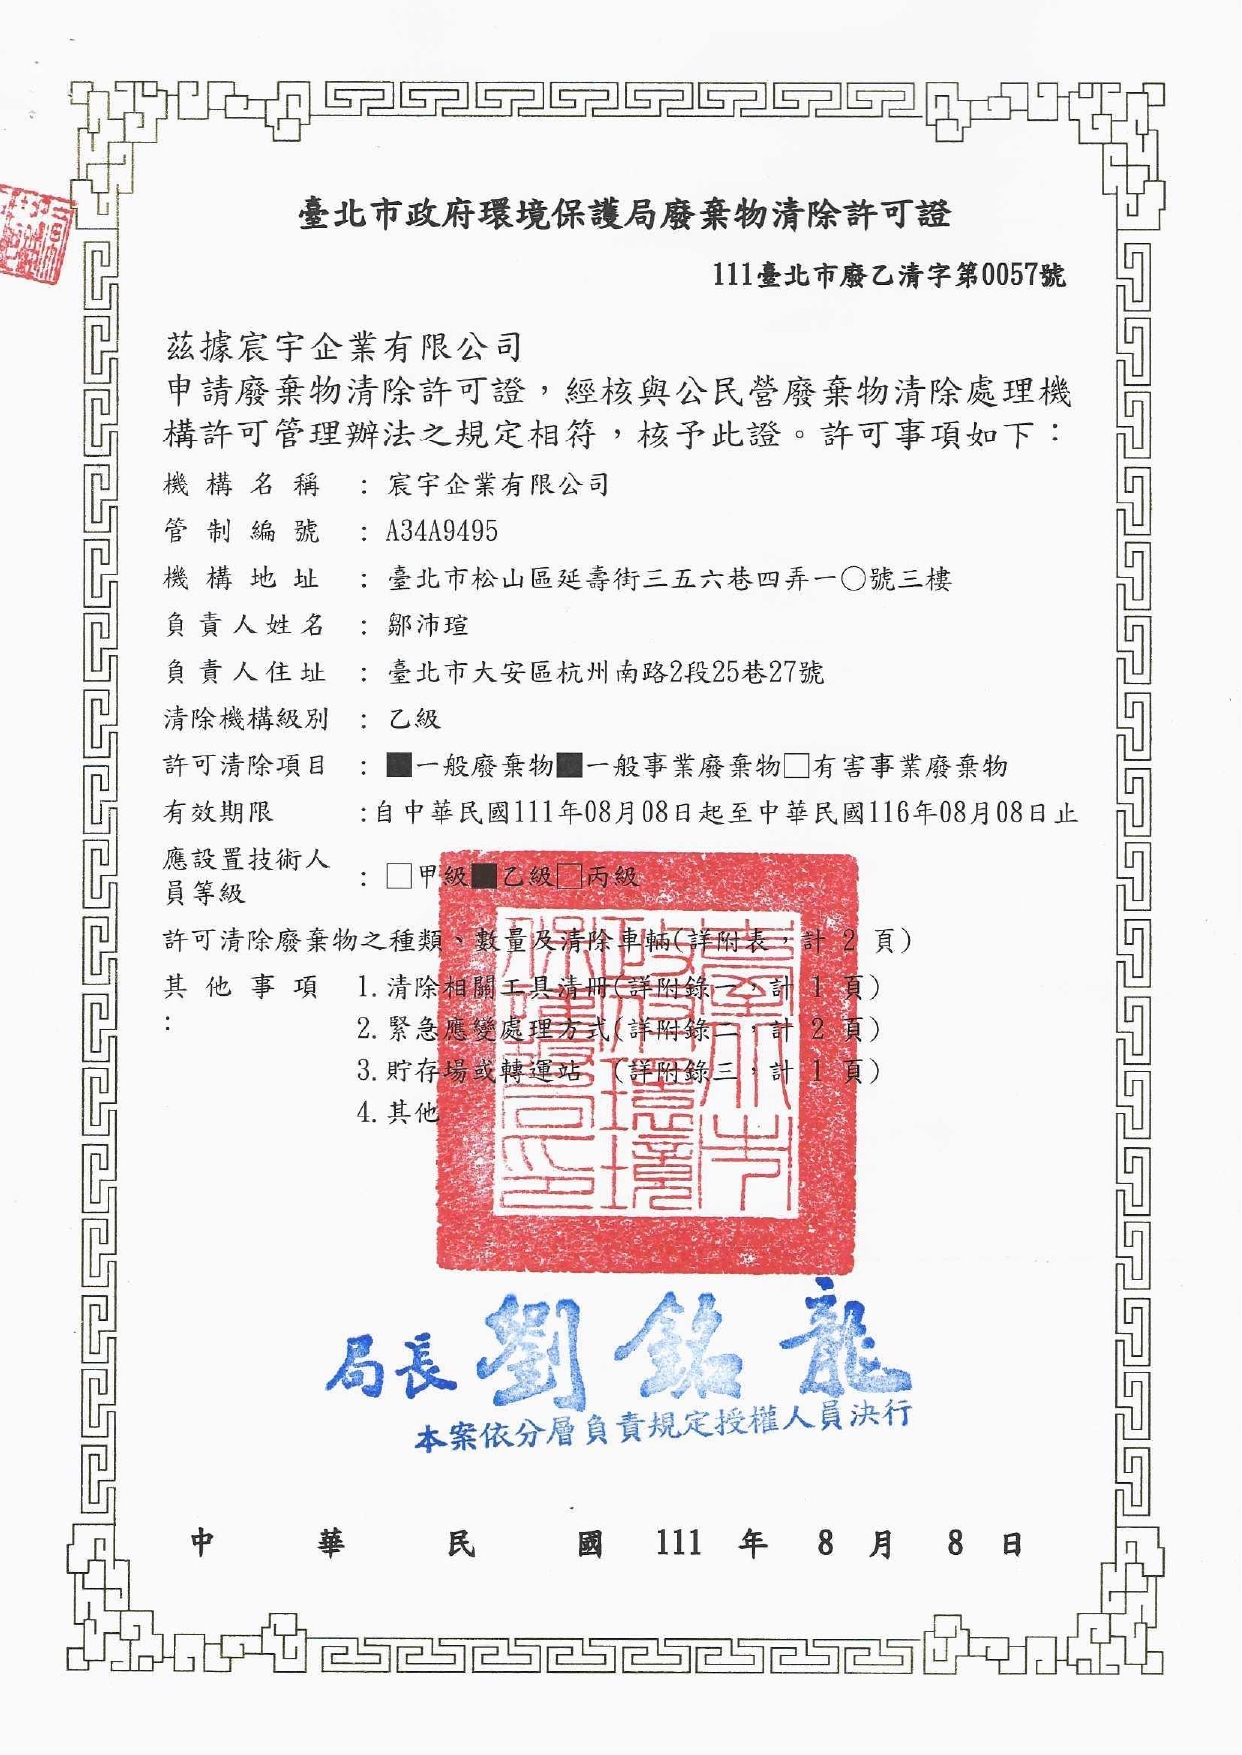 臺北市政府環境保護局廢棄物清除許可證
111臺北市廢乙清字第0057號
茲據宸宇企業有限公司
申請廢棄物清除許可證，經核與公民營廢棄物清除處理機
構許可管理辦法之規定相符，核予此證。許可事項如下：
機構名稱：宸宇企業有限公司
管制編號：A34A9495
機構地址：臺北市松山區延壽街三五六巷四弄一〇號三樓
負責人姓名：鄒沛瑄
負責人住址：臺北市大安區杭州南路2段25巷27號
清除機構級別：乙級
許可清除項目：■一般廢棄物■一般事業廢棄物□有害事業廢棄物
有效期限：自中華民國111年08月08日起至中華民國116年08月08日止
應設置技術人
員等級：□甲級■乙級□丙級
許可清除廢棄物之種類、數量及清除車輛(詳附表，計 2 頁)
其他事項 1.清除相關工具清冊(詳附錄一，計 1 頁)
： 2.緊急應變處理方式(詳附錄二，計 2 頁)
3.貯存場或轉運站 (詳附錄三，計 1 頁)
4.其他
臺北市政府環境保護局印
局長 劉銘龍
本案依分層負責規定授權人員決行
中華民國 111 年 8 月 8 日